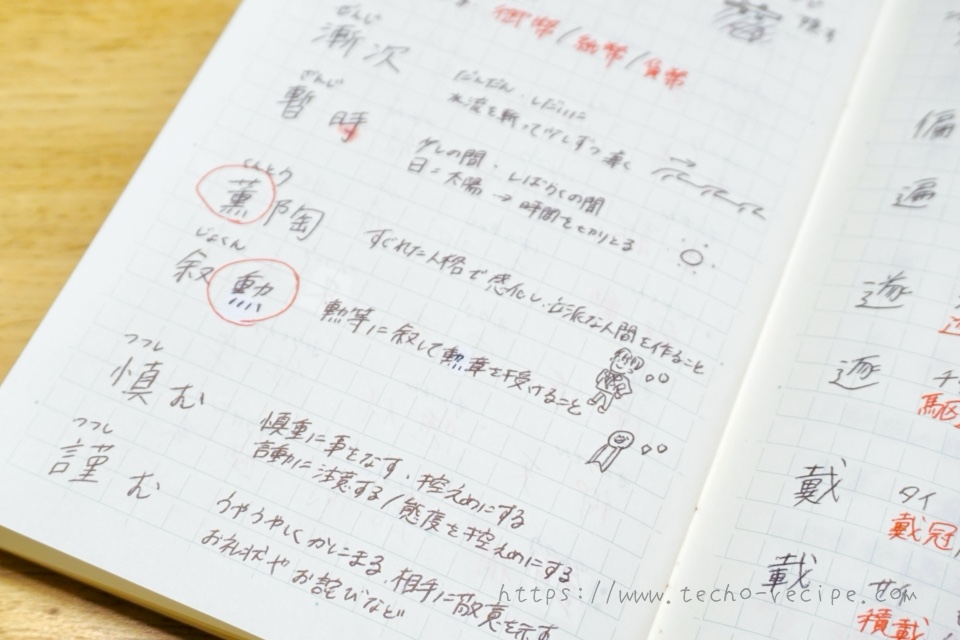 御幣/紙幣/貨幣
ぜんじ
漸次
だんだん、しだいに
水流を斬って少しずつ裏く
ざんじ
暫時
少しの間、しばらくの間
日=太陽 → 時間をきりとる
くんとう
薫陶
すぐれた人格で感化し、立派な人間を作ること
じょくん
叙勲
勲等に叙して勲章を授けること
つつし
慎む
慎重に事をなす、控えめにする
言動に注意する/態度を控えめにする
つつし
謹む
うやうやしくかしこまる、相手に敬意を示す
お礼状やお詫びなど
偏
遍
逐
チ
駆
戴
タイ
戴冠
載
サイ
積載
https://www.techo-recipe.com